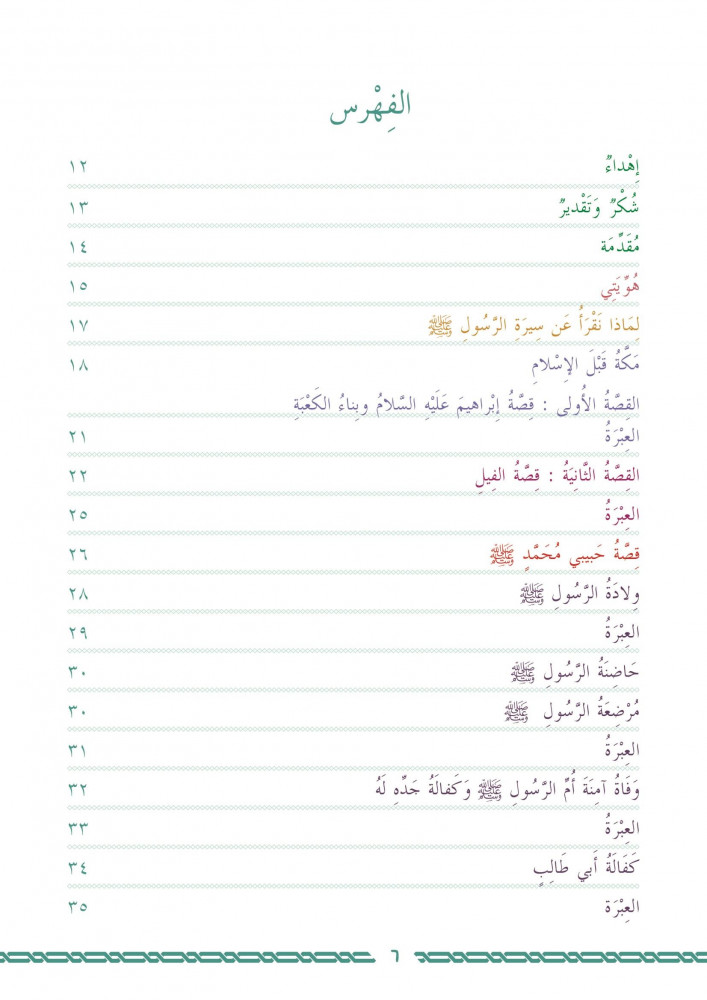 الفِهْرس
إِهْداءٌ ١٢
شُكْرٌ وَتَقْديرٌ ١٣
مُقَدِّمَة ١٤
هُوِّيَتِي ١٥
لِمَاذا نَقْرَأُ عَن سِيرَةِ الرَّسُولِ ﷺ ١٧
مَكَّةُ قَبْلَ الإِسْلامِ ١٨
القِصَّةُ الأُولى : قِصَّةُ إِبْراهيمَ عَلَيْهِ السَّلامُ وبِناءُ الكَعْبَةِ
العِبْرَةُ ٢١
القِصَّةُ الثَّانِيَةُ : قِصَّةُ الفِيلِ ٢٢
العِبْرَةُ ٢٥
قِصَّةُ حَبيبي مُحَمَّدٍ ﷺ ٢٦
وِلادَةُ الرَّسُولِ ﷺ ٢٨
العِبْرَةُ ٢٩
حَاضِنَةُ الرَّسُولِ ﷺ ٣٠
مُرْضِعَةُ الرَّسُولِ ﷺ ٣٠
العِبْرَةُ ٣١
وَفَاةُ آمِنَةَ أُمِّ الرَّسُولِ ﷺ وَكَفالَةُ جَدِّهِ لَهُ ٣٢
العِبْرَةُ ٣٣
كَفَالَةُ أَبي طَالِبٍ ٣٤
العِبْرَة ٣٥
٦